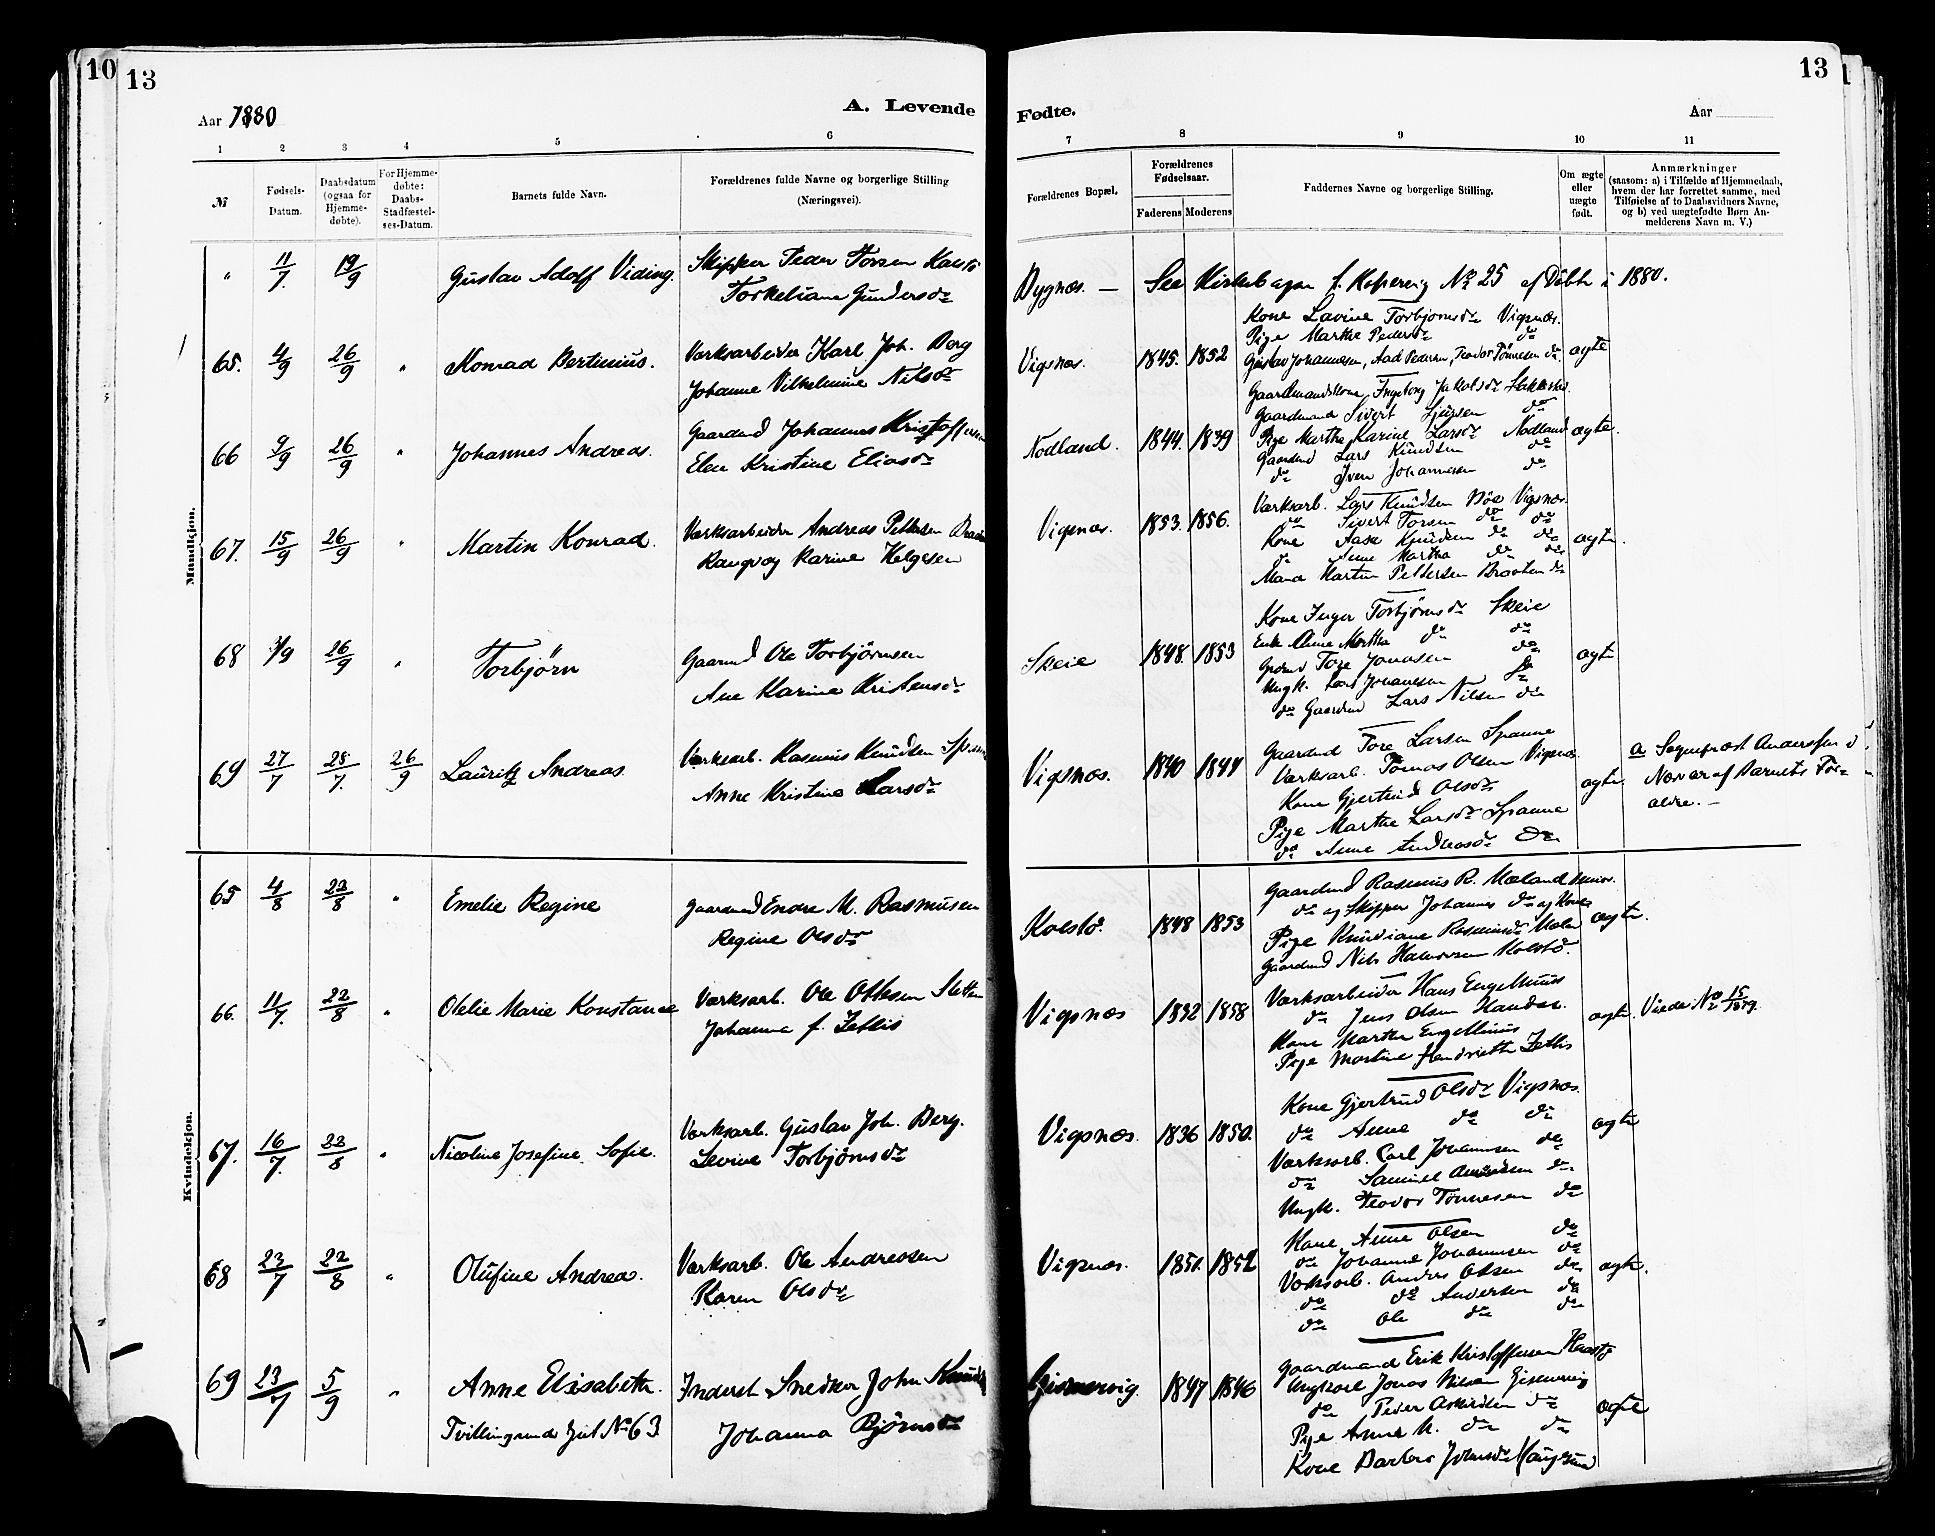 10 13
13
Aar 1880
A. Levende
Fødte.
Aar
1 2 3 4 5 6
7 8 9 10 11
№
Fødsels-Datum.
Daabsdatum (ogsaa for Hjemmedøbte).
For Hjemmedøbte: Daabs-Stadfæstelses-Datum.
Barnets fulde Navn.
Forældrenes fulde Navne og borgerlige Stilling
(Næringsvei).
Forældrenes Bopæl.
Forældrenes Fødselsaar.
Faderens Moderens
Faddernes Navne og borgerlige Stilling.
Om ægte eller uægte født.
Anmærkninger
(saasom: a) i Tilfælde af Hjemmedaab,
hvem der har forrettet samme, med
Tilføielse af to Daabsvidners Navne,
og b) ved uægtefødte Børn An-
melderens Navn m. V.)
Mandkjøn.
" 11/7. 19/9 Gustav Adolf Viding.
Skipper Peder Torsen
Torkeliane Gundersdr
Bygnæs. — See Kirkebogen f. Kopervig No 25 af Døbte i 1880.
65. 4/9 26/9 " Konrad Bertinius.
Værksarbeider Karl Joh. Berg
Johanne Vilhelmine Nilsdr
Vigsnæs. 1845. 1852
Kone Lavine Torbjørnsdr Vigsnæs.
Pige Marthe Pedersdr do
Gustav Johannesen, Aad Pedersen, Teodor Tønnesen do
ægte
66 9/9 26/9 " Johannes Andreas.
Gaardmd Johannes Kristoffersen
Elen Kristine Eliasdr
Nodland. 1844. 1839
Gaardmandskone Ingeborg Jakobsdr
Gaardmand Sivert do
Pige Marthe Karine Larsdr Nodland
Gaardmd Lars Knudsen do
do Iver Johannesen do
ægte.
67. 15/9 26/9 " Martin Konrad.
Værksarbeider Andreas Pettersen
Rangvag Karine Helgesen
Vigsnæs. 1853. 1856.
Værksarb. Lars Knudsen Vigsnæs.
do Sivert Torsen do do
Kone Aasa Knudsen do do
do Anne Martha do do
Mand Martin Pettersen Braaten do
ægte.
68 26/9 " Torbjørn
Gaarmd Ole Torbjørnsen
Ane Karine Kristensdr
Skeie 1848. 1853
Kone Inger Torbjørnsdr Skeie
Enk. Anne Martha do do
Tore Jonasen do
Ungk. Johannesen do
do Gaardmd Lars Nilsen do
ægte
69 27/7 28/7. 26/9 Lauritz Andreas.
Værksarb. Rasmus Knudsen
Anne Kristine Larsdr
Vigsnæs. 1840 1844
Gaardmd Tore Larsen Spanne
Værksarb. Tomas Olsen Vigsnæs.
Kone Gjertrud Olsdr
Pige Marthe Larsdr Spanne
do Anne Andreasdr do
ægte
a Sogneprest Anderssen i
Nærvær af Barnets For-
ældre. —
Kvindekjøn.
65 4/8 22/8 " Emelie Regine
Gaardmd Endre M. Rasmusen
Regine Olsdr
Kolstø. 1848 1853
Gaardmd Rasmus R. Mæland
do og Skipper Johannes do og Kone
Pige Knudiane Rasmusdr
Gaardmd Nils Halvorsen Kolstø.
ægte.
66. 11/7. 22/8 " Olelie Marie Konstance
Værksarb. Ole Ottesen Sletten
Johanna f. Zetlis
Vigsnæs 1852 1858
Værksarbeider Hans Engellnius
do Jens Olsen
Kone Marthe Engellnius
Pige Martine Hendriette Zetlis
ægte.
Viede No 15/1879.
67. 16/7. 22/8 " Nicoline Josefine Sofie.
Værksarb. Gustav Joh. Berg.
Levine Torbjørnsdr
Vigsnæs. 1836 1850.
Kone Gjertrud Olsdr Vigsnæs.
do Anne do do
Værksarb. Carl Johannesen do
do Samuel do
Ungk. Teodor Tønnesen do
ægte
68 23/7 22/8 " Olufine Andrea.
Værksarb. Ole Andreasen
Karen Olsdr
Vigsnæs. 1851. 1852
Kone Anne Olsen do
do Johanne Johannesen do
Værksarb. Andres Olsen do
do do Andersen do
do Ole do do
ægte.
69 23/7 5/9 " Anne Elisabeth.
Tvillingsund Gut No 63.
Inderst Snedker John
Johanna Bjørnsdr
Gismervig. 1847 1846
Gaardmand Erik Kristoffersen
Ungkarl Jonas Nilsen Gismervig
do Peder do
Pige Anne M. do do
Kone Barbro Johnsdr Haugesund
ægte